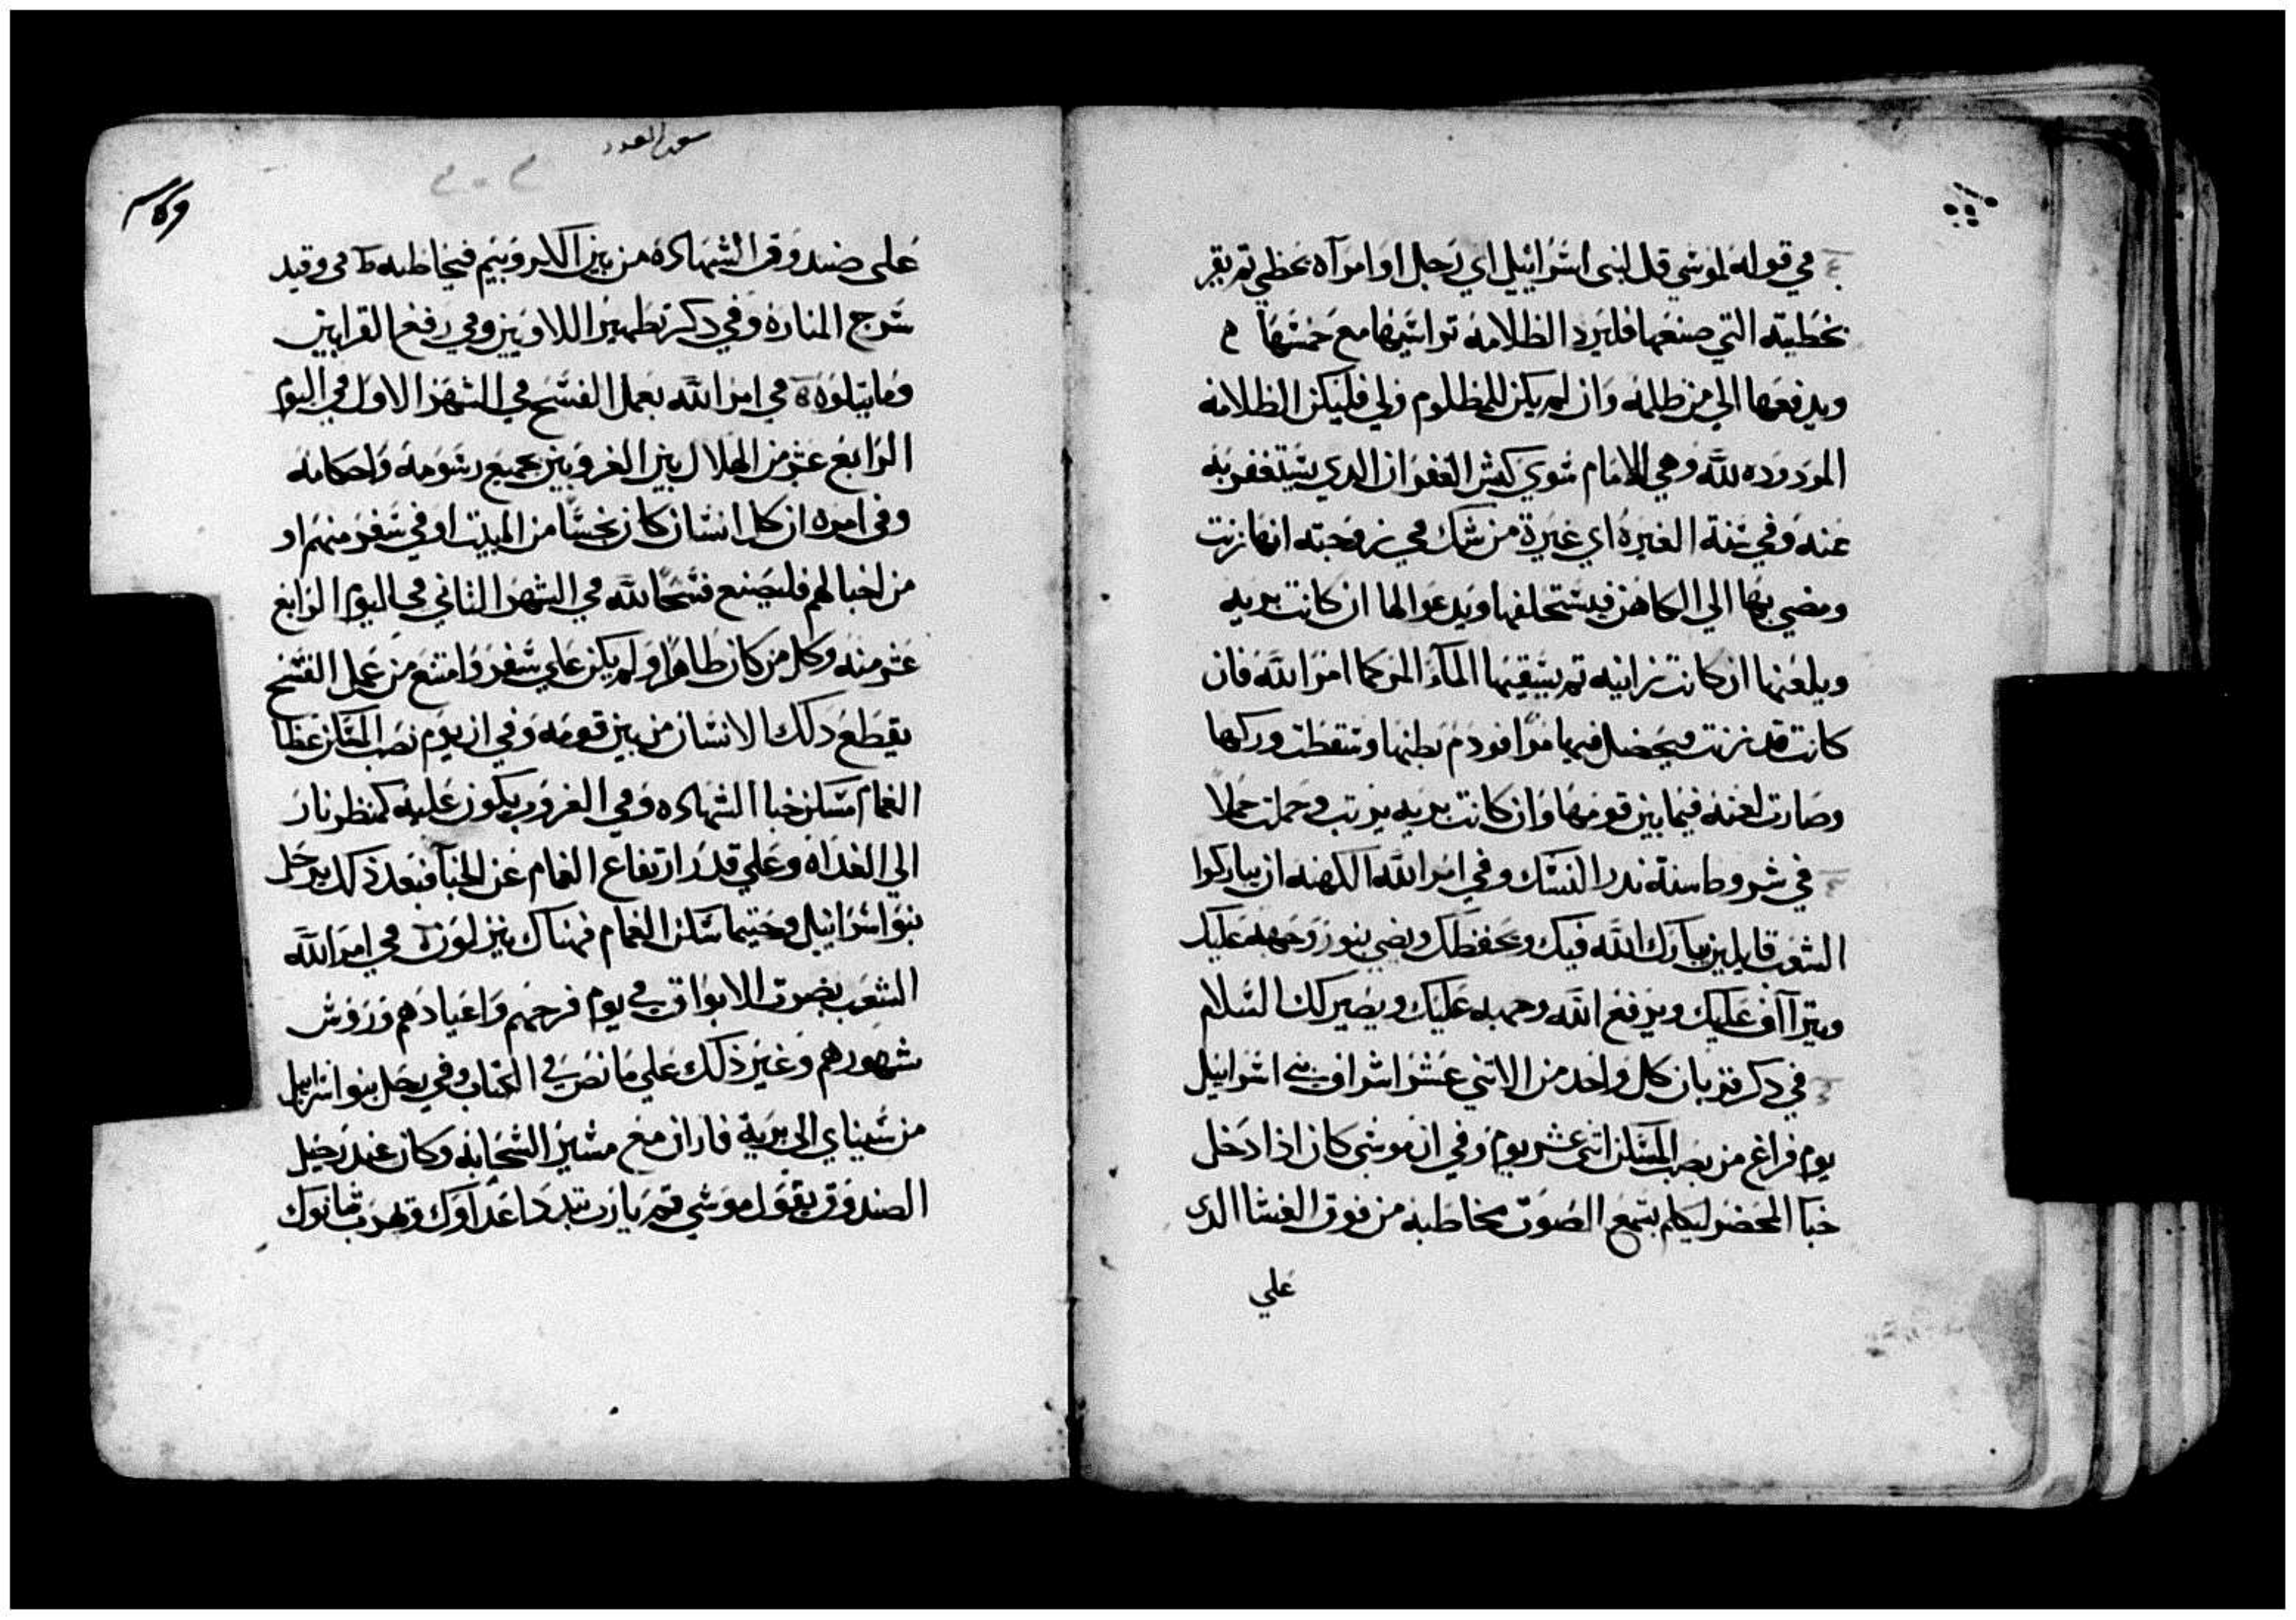 في قوله لموسي قل لبني اسرائيل اي رجل او امرآه يخطي ثم يقر
بخطيته التي صنعها فليرد الظلامه براسها مع خمسها
ويدفعها الي من ظلمه وان لم يكن للمظلوم ولي فليكن الظلامه
المردوده لله وهي للامام سوي كبش الغفران الدي يستغفر به
عنه وفي سنة الغيره اي غيرة من شك في زوجته انها زنت
ومضي بها الي الكاهن فيستحلفها ويدعوا لها ان كانت بريه
ويلعنها ان كانت زانيه ثم يسقيها المآء المر كما امر الله فان
كانت قد زنت فيحصل فيها مرا فورم بطنها وسقطت وركها
وصارت لعنه فيما بين قومها وان كانت بريه بريت وحملت حملاً
في شروط سنة ندر النسك وفي امر الله الكهنه ان يباركوا
الشعب قايلين يبارك الله فيك ويحفظك ويضي بنور وجهه عليك
ويتراآف عليك ويرفع الله وجهه عليك ويصير لك السلام
في دكر قربان كل واحد من الاتني عشر اشراف بني اسرائيل
يوم فراغ من نصب المسكن اتني عشر يوم وفي ان موسي كان ادا دخل
خبا المحضر ليكلم يسمع الصوت مخاطبه من فوق الغشا الدي
علي
سفر العدد
علي صندوق الشهاده من بين الكاروبيم فيخاطبه في وقيد
سرج المناره وفي دكر تطهير اللاويين وفي رفع القرابين
وما يتلوه في امر الله بعمل الفسح في الشهر الاول في اليوم
الرابع عشر من الهلال بين الغروبين بجميع رسومه واحكامه
وفي امره ان كل انسان كان نجسا من الميت او في سفر منهم او
من اخبالهم فليصنع فسحا لله في الشهر الثاني في اليوم الرابع
عشر منه وكل من كان طاهرا ولم يكن علي سفر وامتنع من عمل الفسح
يقطع دلك الانسان من بين قومه وفي ان يوم نصب المسكن غطا
الغمام مسكن خبا الشهاده وفي الغروب يكون عليه كمنظر نار
الي الغداه وعلي قدر ارتفاع الغمام عن الخبآ فبعد ذلك يرحل
بنو اسرائيل وحيتما سكن الغمام فهناك ينزلون في امر الله
الشعب بضرب الابواق في يوم فرحهم واعيادهم وروس
شهورهم وغير ذلك علي ما نص في الكتاب وفي رحل بنو اسرائيل
من سيناي الي برية فاران مع مسير السحابه وكان عند رحيل
الصندوق يقول موسي قم يا رب تبدد اعداوك وتهرب شانوك